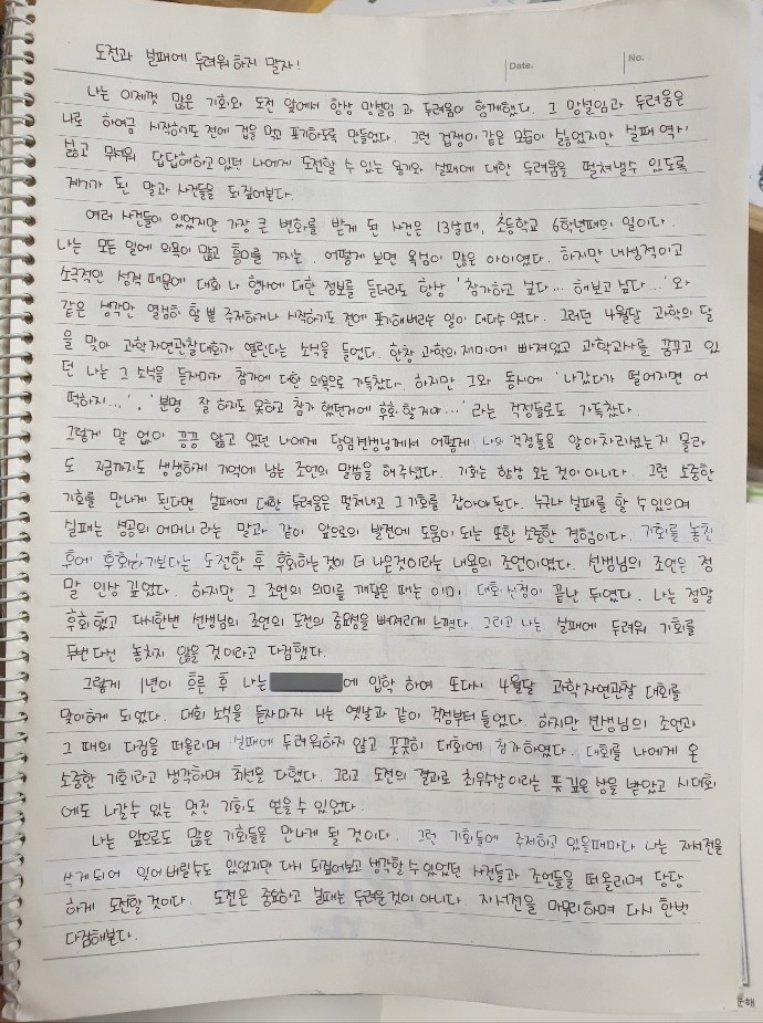 도전과 실패에 두려워하지 말자!
Date.
No.
나는 이제껏 많은 기회와 도전 앞에서 항상 망설임과 두려움이 함께했다. 그 망설임과 두려움은
나로 하여금 시작하기도 전에 겁을 먹고 포기하도록 만들었다. 그런 겁쟁이 같은 모습이 싫었지만 실패 역시
싫고 무서워 답답해하고 있던 나에게 도전할 수 있는 용기와 실패에 대한 두려움을 떨쳐낼수 있도록
계기가 된 말과 사건들을 되짚어본다.
여러 사건들이 있었지만 가장 큰 변화를 받게 된 사건은 13살때, 초등학교 6학년때의 일이다.
나는 모든 일에 의욕이 많고 흥미를 가지는, 어떻게 보면 욕심이 많은 아이였다. 하지만 내성적이고
소극적인 성격 때문에 대회 나 행사에 대한 정보를 듣더라도 항상 '참가하고 싶다... 해보고 싶다...'와
같은 생각만 열심히 할 뿐 주저하거나 시작하기도 전에 포기해버리는 일이 대다수였다. 그러던 4월달 과학의 달
을 맞아 과학자연관찰대회가 열린다는 소식을 들었다. 한창 과학의 재미에 빠져있고 과학교사를 꿈꾸고 있
던 나는 그 소식을 듣자마자 참가에 대한 의욕으로 가득찼다. 하지만 그와 동시에 '나갔다가 떨어지면 어
떡하지...', '분명 잘 하지도 못하고 참가 했던거에 후회 할거야...' 라는 걱정들로도 가득찼다.
그렇게 말 없이 끙끙 앓고 있던 나에게 담임선생님께서 어떻게 나의 걱정들을 알아차리셨는지 몰라
도 지금까지도 생생하게 기억에 남는 조언의 말씀을 해주셨다. 기회는 항상 오는 것이 아니다. 그런 소중한
기회를 만나게 된다면 실패에 대한 두려움은 떨쳐내고 그 기회를 잡아야 된다. 누구나 실패를 할 수 있으며
실패는 성공의 어머니 라는 말과 같이 앞으로의 발전에 도움이 되는 또한 소중한 경험이다. 기회를 놓친
후에 후회하기보다는 도전한 후 후회하는 것이 더 나은것이라는 내용의 조언이였다. 선생님의 조언은 정
말 인상 깊었다. 하지만 그 조언의 의미를 깨달은 때는 이미 대회신청이 끝난 뒤였다. 나는 정말
후회 했고 다시한번 선생님의 조언의 도전의 중요성을 뼈저리게 느꼈다. 그리고 나는 실패에 두려워 기회를
두번 다신 놓치지 않을 것 이라고 다짐했다.
그렇게 1년이 흐른 후 나는 에 입학 하여 또다시 4월달 과학자연관찰 대회를
맞이하게 되었다. 대회 소식을 듣자마자 나는 옛날과 같이 걱정부터 들었다. 하지만 선생님의 조언과
그 때의 다짐을 떠올리며 실패에 두려워하지 않고 꿋꿋히 대회에 참가하였다. 대회를 나에게 온
소중한 기회라고 생각하며 최선을 다했다. 그리고 도전의 결과로 최우수상이라는 뜻 깊은 상을 받았고 시대회
에도 나갈수 있는 멋진 기회도 얻을 수 있었다.
나는 앞으로도 많은 기회들을 만나게 될 것이다. 그런 기회들에 주저하고 있을때마다 나는 자서전을
쓰게되어 잊어버릴수도 있었지만 다시 되짚어보고 생각할 수 있었던 사건들과 조언들을 떠올리며 당당
하게 도전할 것이다. 도전은 중요하고 실패는 두려운 것이 아니다. 자서전을 마무리하며 다시 한번
다짐해본다.